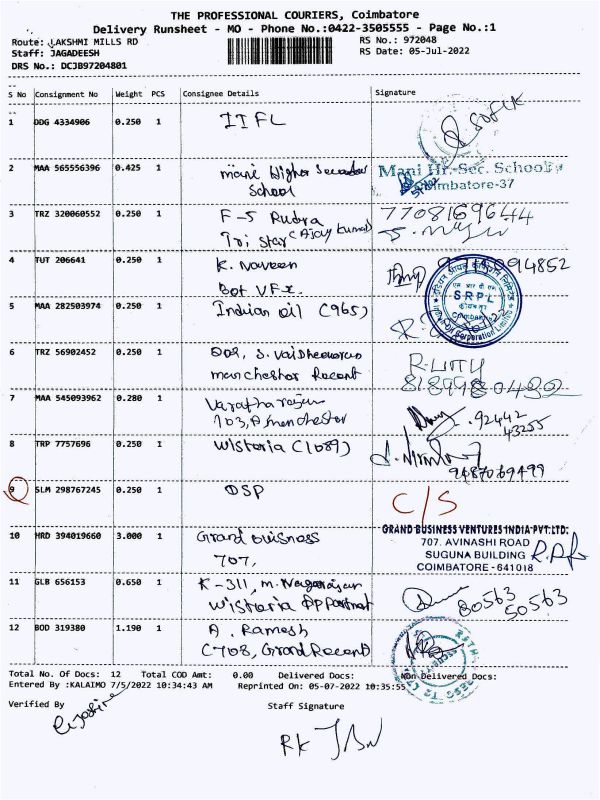 THE PROFESSIONAL COURIERS, Coimbatore
Delivery Runsheet - MO - Phone No.:0422-3505555 - Page No.:1
Route: LAKSHMI MILLS RD
RS No.: 972048
Staff: JAGADEESH
RS Date: 05-Jul-2022
DRS No.: DCJB97204801
S No Consignment No Weight PCS Consignee Details Signature
1 DDG 4334906 0.250 1 IIFL
2 MAA 565556396 0.425 1 mani Higher Secondary
School
Mani Hr. Sec. School
Coimbatore-37
3 TRZ 320060552 0.250 1 F-5 Rudra
Tri Star (Ajay Kumar)
7708169644
4 TUT 206641 0.250 1 K. Naveen
Bot VFX.
SRPL
5 MAA 282503974 0.250 1 Indian oil (965)
6 TRZ 56902452 0.250 1
manchestor Recent
7 MAA 545093962 0.280 1 Varatharajan
103, A manchester
92442
43255
8 TRP 7757696 0.250 1 Wistaria (1089)
9487069499
9 SLM 298767245 0.250 1 DSP
C/S
10 HRD 394019660 3.000 1 Grand buisness
707,
GRAND BUSINESS VENTURES INDIA PVT.LTD.
707. AVINASHI ROAD
SUGUNA BUILDING
COIMBATORE - 641018
11 GLB 656153 0.650 1 K-311, m. Nagarajan
Wistaria
80563
50563
12 BOD 319380 1.190 1 A. Ramesh
C708, Grand Recent
Total No. Of Docs: 12 Total COD Amt: 0.00 Delivered Docs: Non Delivered Docs:
Entered By :KALAIMO 7/5/2022 10:34:43 AM Reprinted On: 05-07-2022 10:35:55
Verified By
Staff Signature